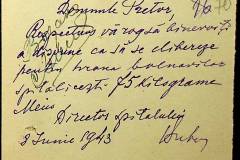 Domnule Pretor
Respectuos vă rog să binevoiți
a dispune ca să se elibereze
pentru hrana bolnavilor
spitalicești 75 kilograme
Meiu
Directos Spitalului
3 Iunie 1943